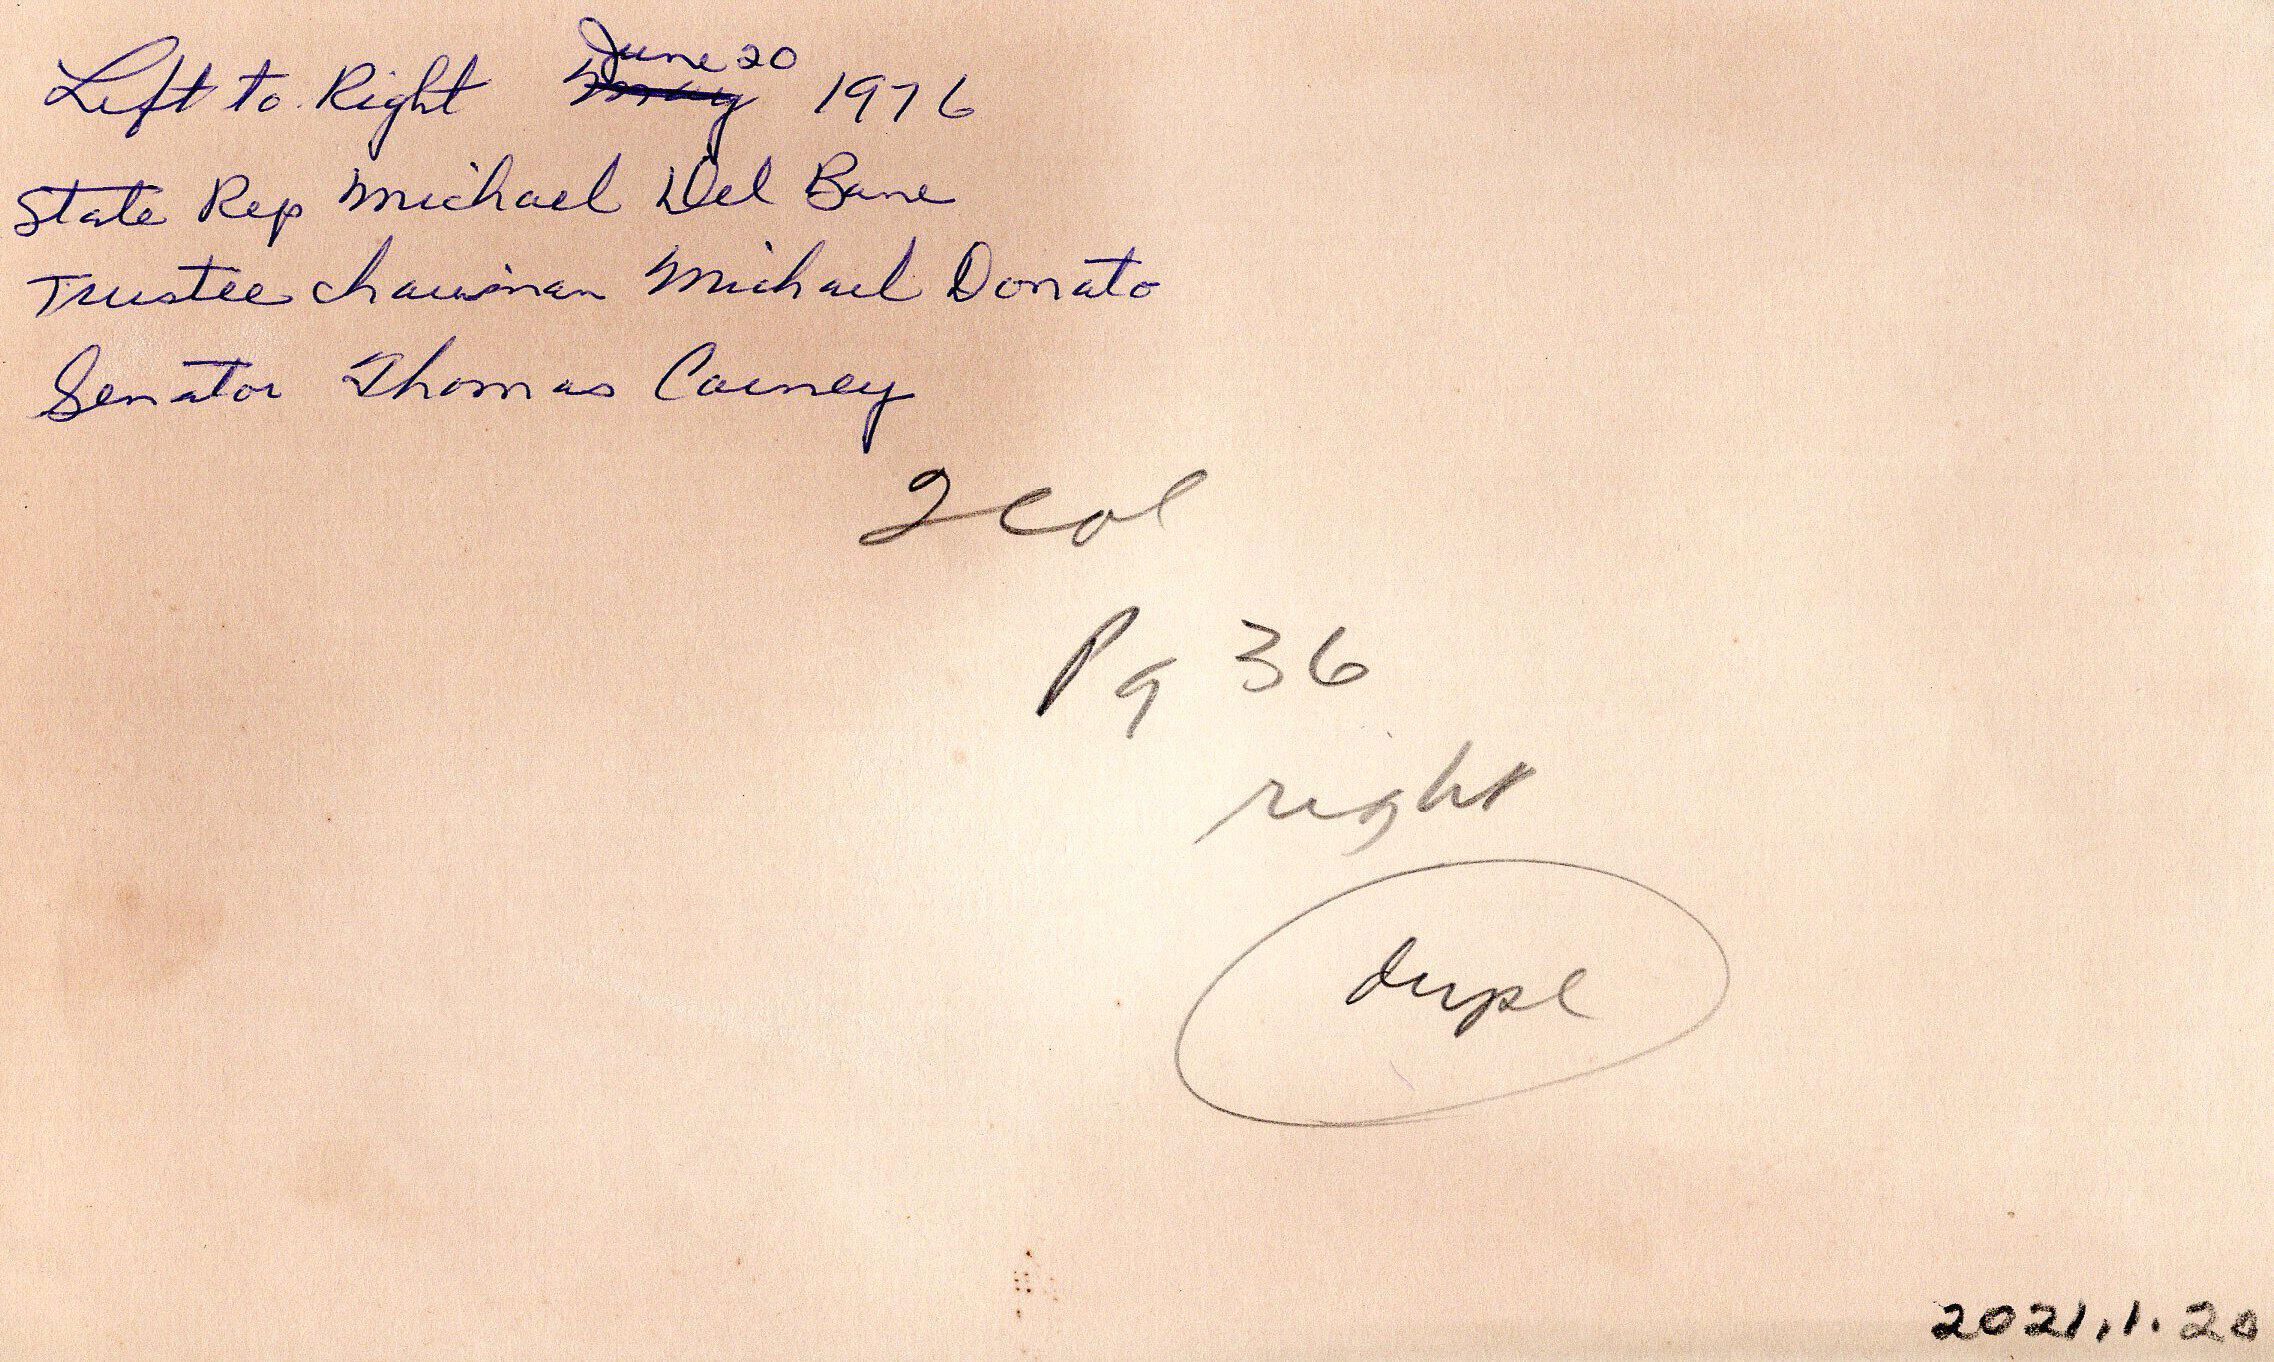 Left to Right June 20 1976
State Rep Michael Del Bane
Trustee chairman Michael Donato
Senator Thomas Carney
2 col
Pg 36
right
dupl
2021.1.20